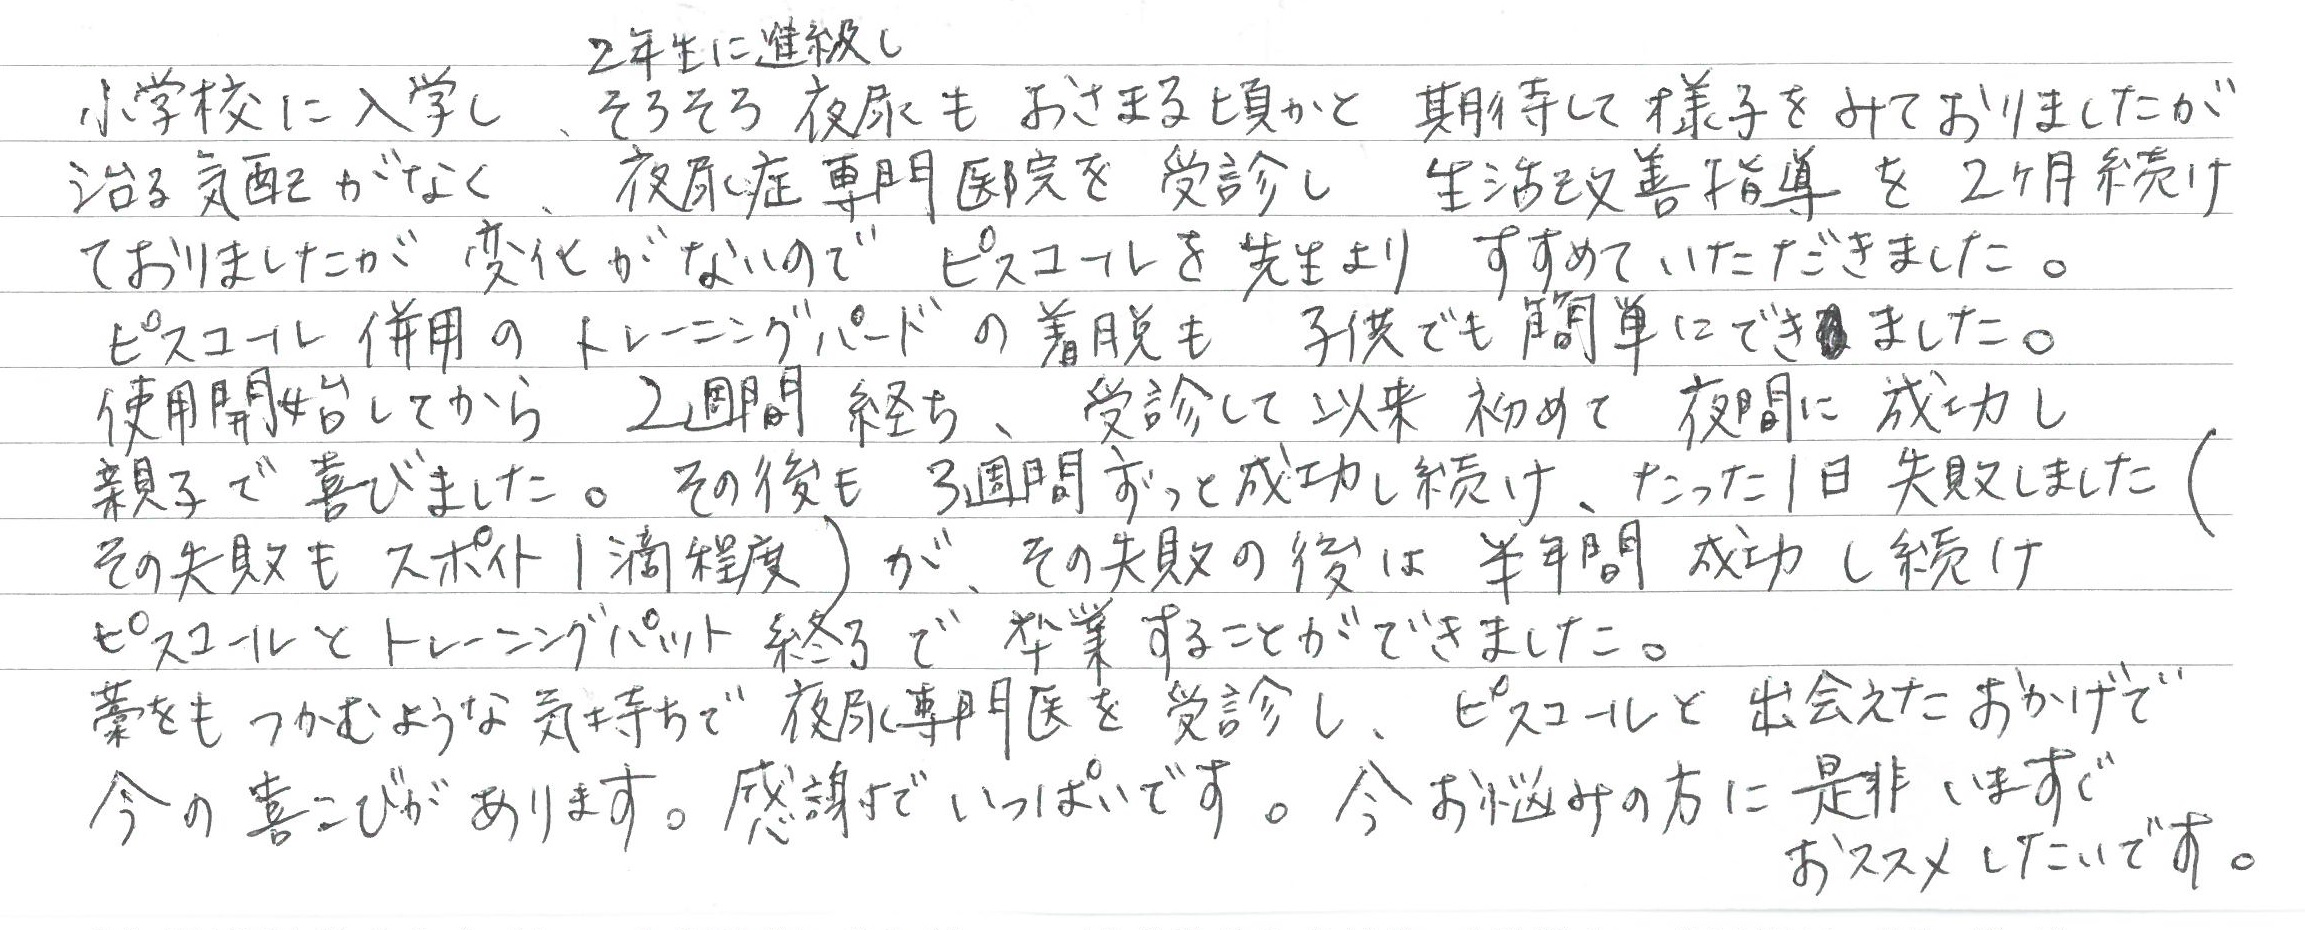 2年生に進級し
小学校に入学し、そろそろ夜尿もおさまる頃かと期待して様子をみておりましたが
治る気配がなく、夜尿症専門医院を受診し 生活改善指導を2ヶ月続け
ておりましたが変化がないので ピスコールを先生よりすすめていただきました。
ピスコール併用のトレーニングパードの着脱も 子供でも簡単にできました。
使用開始してから 2週間経ち、受診して以来初めて夜間に成功し
親子で喜びました。その後も3週間ずっと成功し続け、たった1日失敗しました(
その失敗もスポイト1滴程度)が、その失敗の後は半年間成功し続け
ピスコールとトレーニングパット終了で卒業することができました。
藁をもつかむような気持ちで夜尿専門医を受診し、ピスコールと出会えたおかげで
今の喜こびがあります。感謝でいっぱいです。今お悩みの方に是非いますぐ
おススメしたいです。